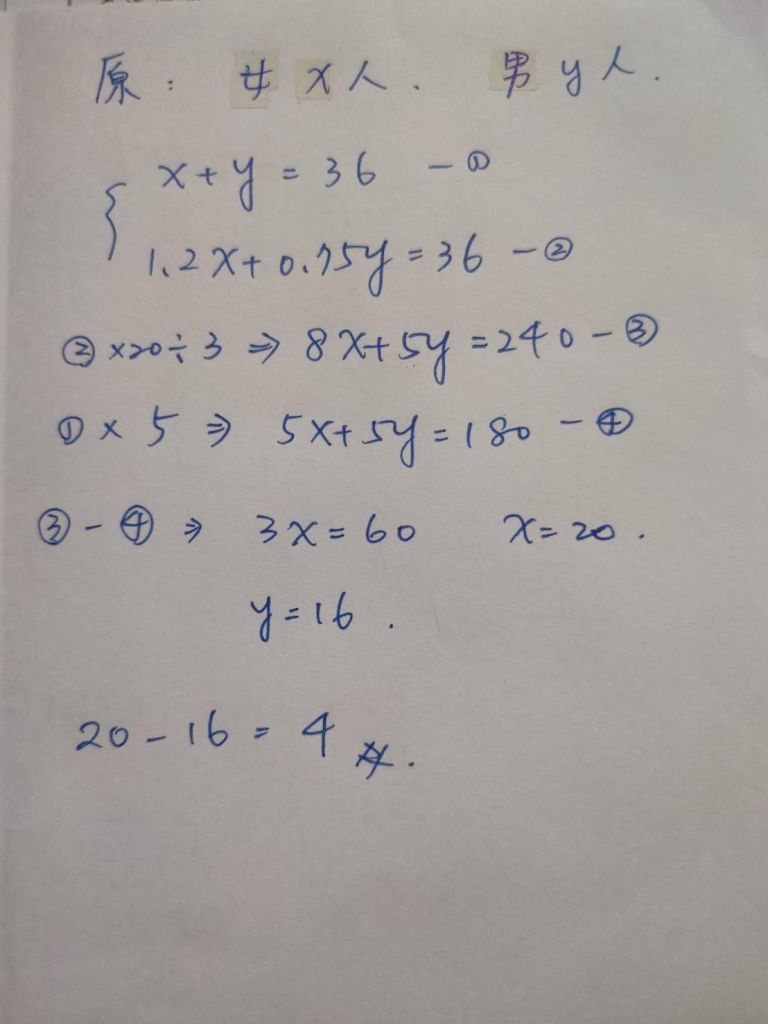 原： 女 x 人． 男 y 人．
x + y = 36 — ①
1.2x + 0.75y = 36 — ②
② ×20÷3 ⇒ 8x+5y = 240 — ③
① × 5 ⇒ 5x+5y = 180 — ④
③ - ④ ⇒ 3x = 60 x = 20 .
y = 16 .
20 - 16 = 4